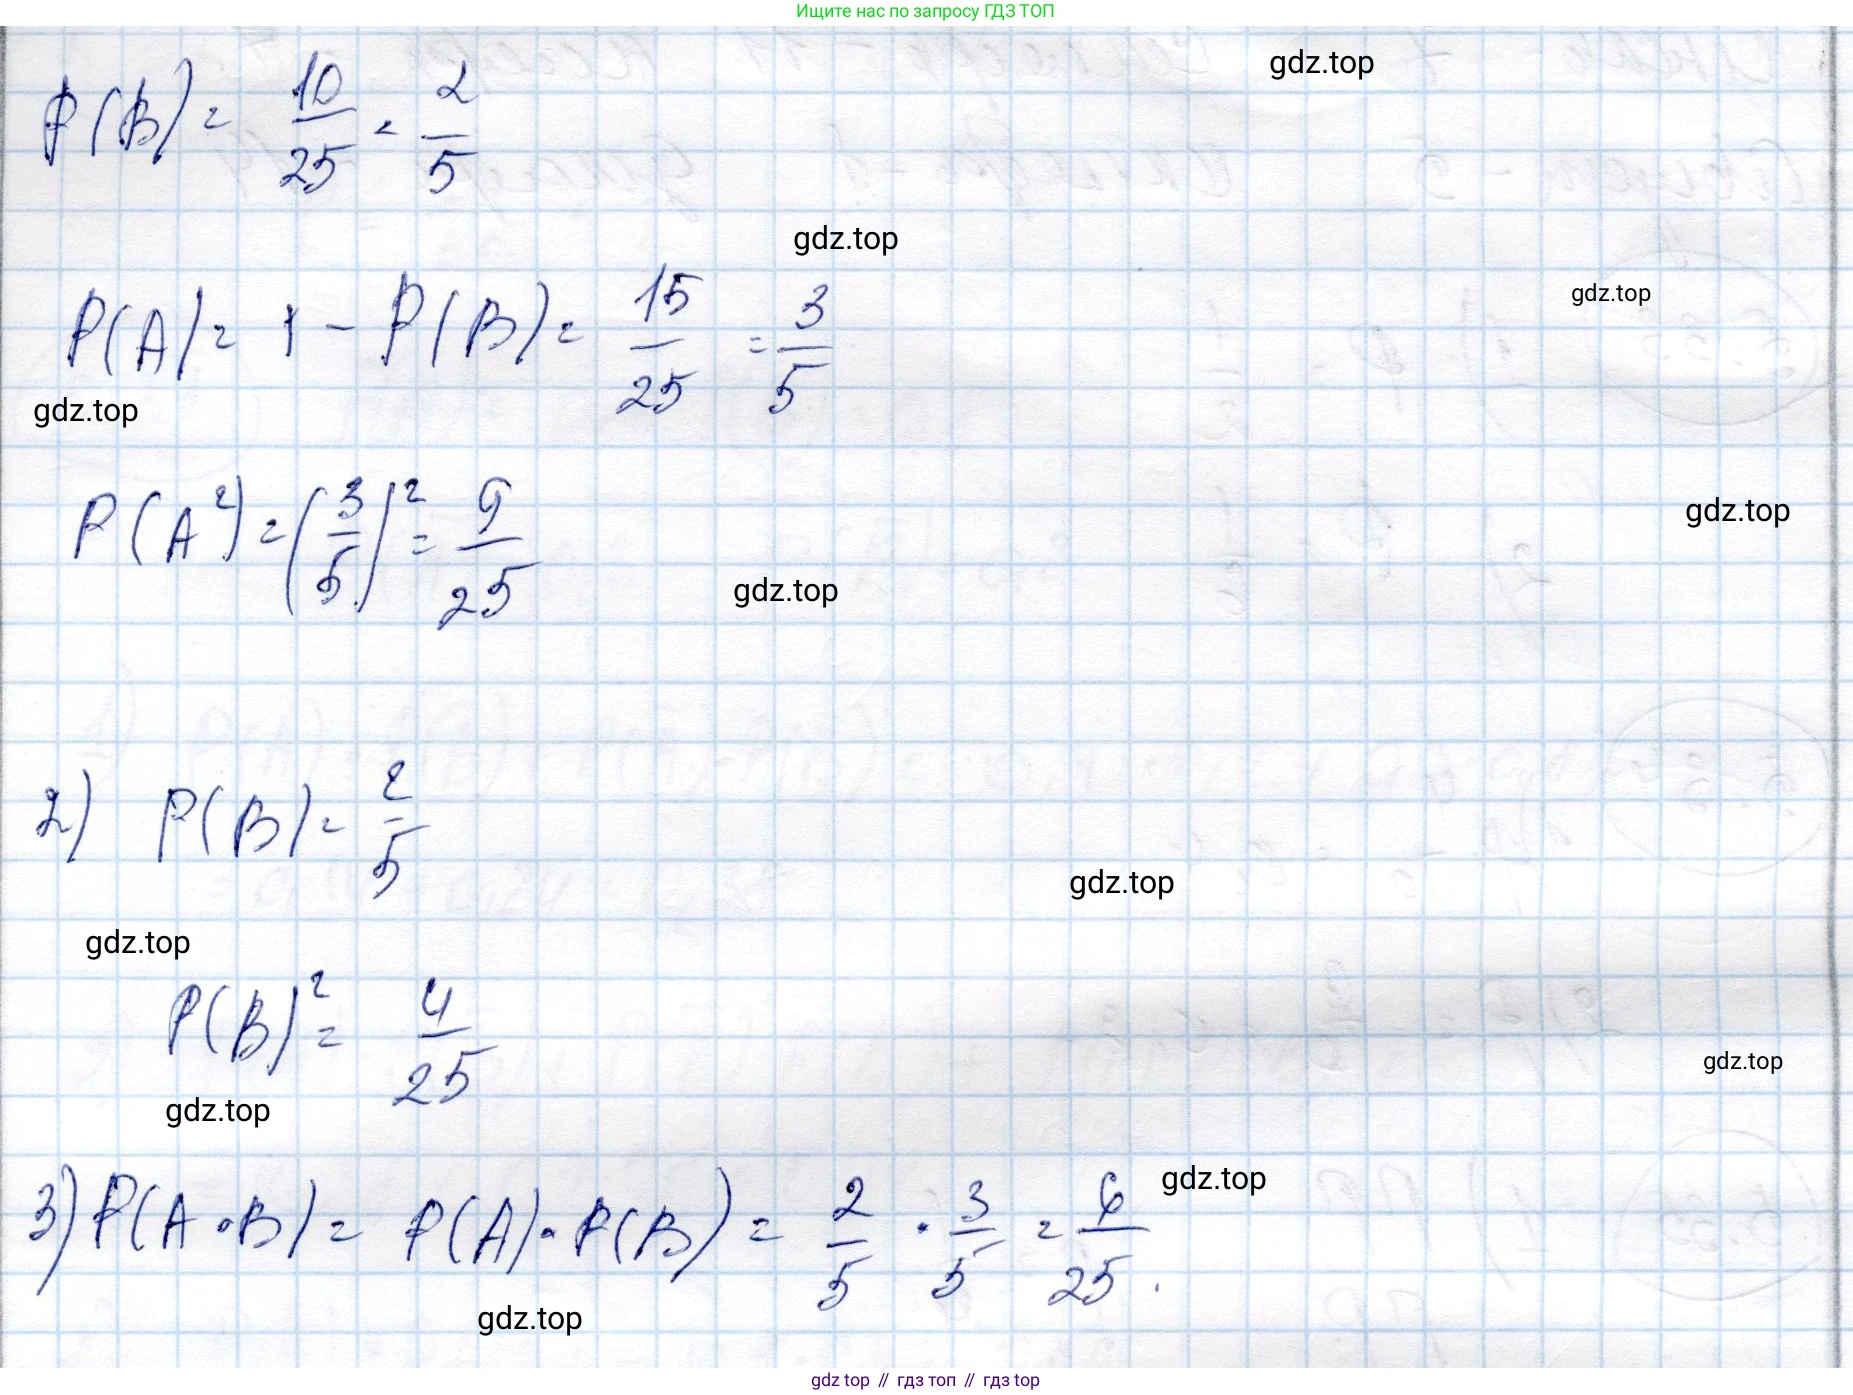 Ищите нас по запросу ГДЗ ТОП
gdz.top
P(B) = 10/25 = 2/5
gdz.top
gdz.top
P(A) = 1 - P(B) = 15/25 = 3/5
gdz.top
P(A²) = (3/5)² = 9/25
gdz.top
gdz.top
2) P(B) = 2/5
gdz.top
gdz.top
P(B)² = 4/25
gdz.top
gdz.top
3) P(A · B) = P(A) · P(B) = 2/5 · 3/5 = 6/25.
gdz.top
gdz.top
gdz top // гдз топ // гдз top